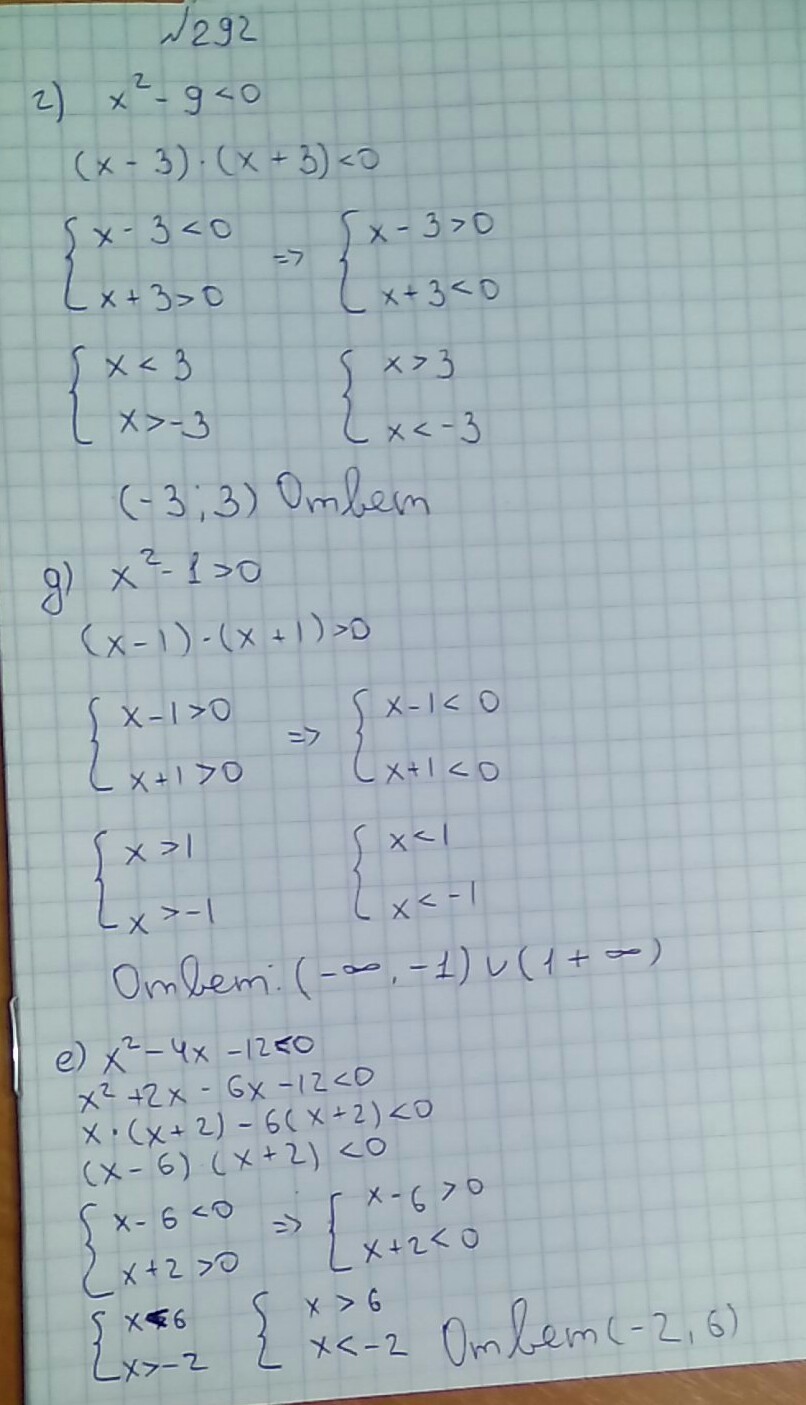 №292
г) x² - 9 < 0
(x - 3) · (x + 3) < 0
{ x - 3 < 0 => { x - 3 > 0
x + 3 > 0 x + 3 < 0
{ x < 3 { x > 3
x > -3 x < -3
(-3; 3) Ответ
д) x² - 1 > 0
(x - 1) · (x + 1) > 0
{ x - 1 > 0 => { x - 1 < 0
x + 1 > 0 x + 1 < 0
{ x > 1 { x < 1
x > -1 x < -1
Ответ: (-∞, -1) ∪ (1 + ∞)
е) x² - 4x - 12 < 0
x² + 2x - 6x - 12 < 0
x · (x + 2) - 6(x + 2) < 0
(x - 6) (x + 2) < 0
{ x - 6 < 0 => { x - 6 > 0
x + 2 > 0 x + 2 < 0
{ x < 6 { x > 6
x > -2 x < -2 Ответ (-2, 6)